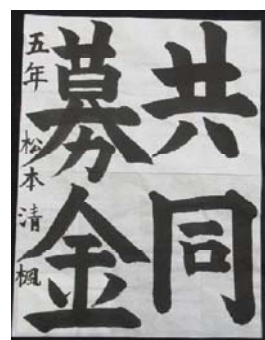 共同
募金
五年 松本清楓